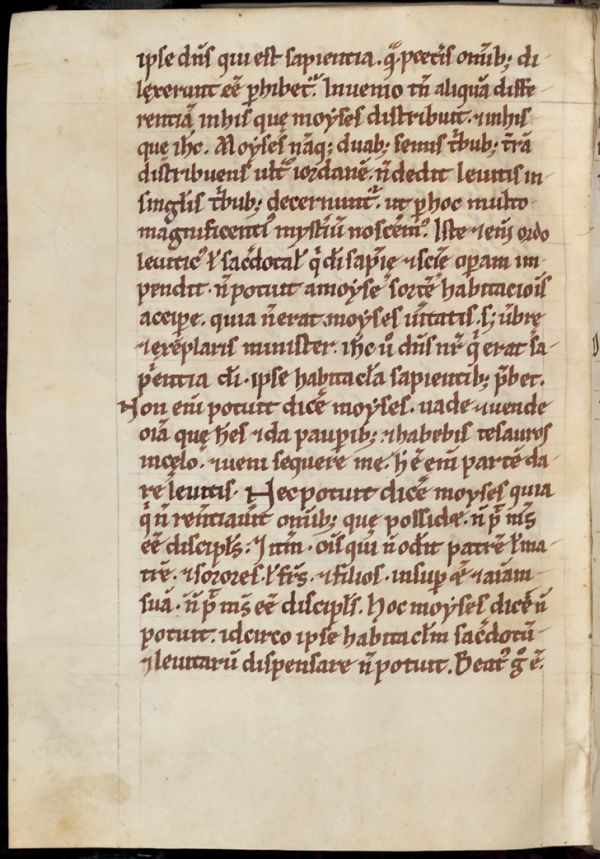 ipse dn̄s qui est sapientia. q̄ p̄ cet̄is omīb; di
lexerunt eē phibet᷑. Inuenio tn̄ aliquā diffe
rentiā inhis quę moyses distribuit. ⁊inhis
que ih̄c. Moyses nāq; duab; semis t̄bub; t̄rā
distribuens ult᷑ iordanē. n̄ dedit leuitis in
singlis t̄bub; decernunt᷑. ut phoc multo
magnificenti᷒ mysteriū noscem᷒. Iste ⁊eni᷒ ordo
leuitic᷒ ł sac̄dotał q̄ dī sapīe ⁊scīe operam im
pendit. n̄ potuit amoyse sortē habitacioīs
accipe. quia n̄ erat moyses ūitatis. s; ūbrę
⁊exēplaris minister. ih̄c ū dn̄s nr̄ q̄ erat sa
pientia dī. ipse habitacła sapientib; p̄bet.
Non enī potuit dicē moyses. uade ⁊uende
oīa quę hēs ⁊da paupib; ⁊habebis tesauros
incęlo. ⁊ueni sequere me. hēc enī partē da
re leuitis. Nec potuit dicē moyses quia
q̄ n̄ renūtiauit omīb; que possidę. n̄ p̄ ms̄
eē discipłs. Itm̄. oīs qui n̄ odit patrē ł ma
trē. ⁊sorores. ł fr̄s. ⁊filios. insup ⁊ aīam
suā. n̄ p̄ ms̄ eē discipłs. Hoc moyses dicē n̄
potuit. idcirco ipse habitacłm sac̄dotū
⁊leuitarū dispensare n̄ potuit. Beat᷒ g° ē.